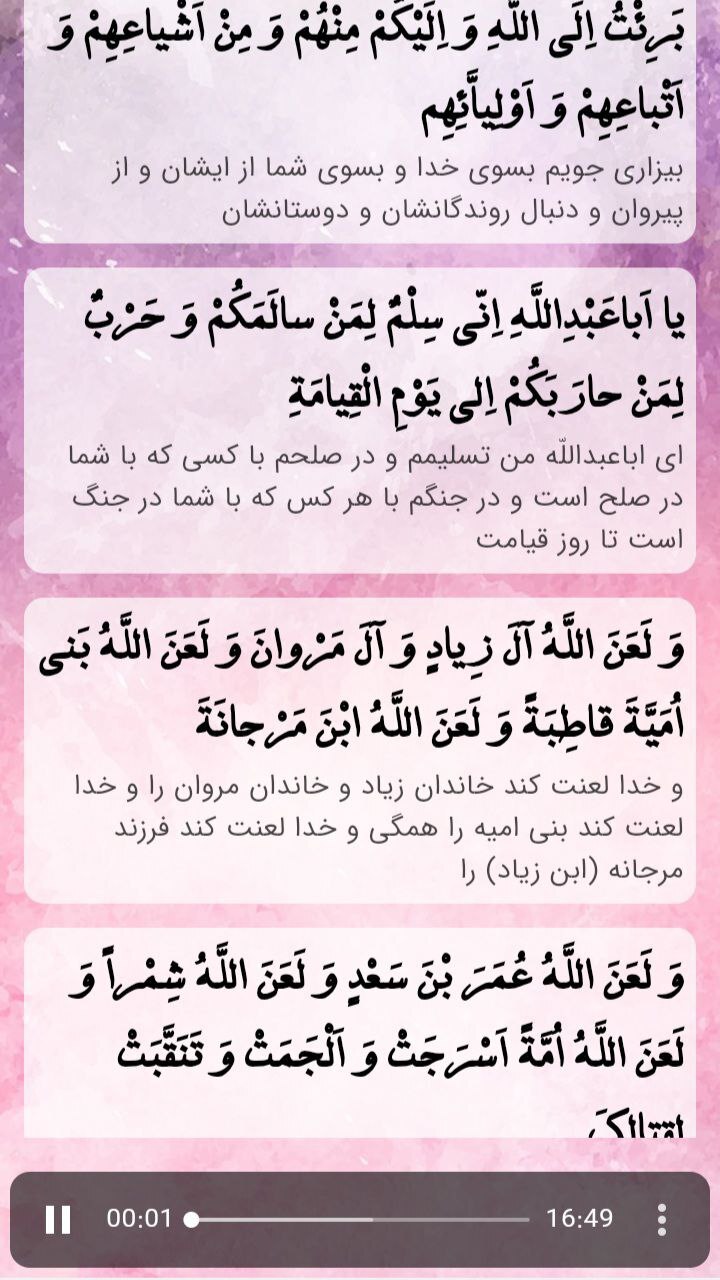 بَرِئْتُ اِلَى اللَّهِ وَ اِلَيْكُمْ مِنْهُمْ وَ مِنْ اَشْياعِهِمْ وَ
اَتْباعِهِمْ وَ اَوْلِياَّئِهِم
بیزاری جویم بسوی خدا و بسوی شما از ایشان و از
پیروان و دنبال روندگانشان و دوستانشان
يا اَباعَبْدِاللَّهِ اِنّى سِلْمٌ لِمَنْ سالَمَكُمْ وَ حَرْبٌ
لِمَنْ حارَبَكُمْ اِلى يَوْمِ الْقِيامَةِ
ای اباعبداللّه من تسلیمم و در صلحم با کسی که با شما
در صلح است و در جنگم با هر کس که با شما در جنگ
است تا روز قیامت
وَ لَعَنَ اللَّهُ آلَ زِيادٍ وَ آلَ مَرْوانَ وَ لَعَنَ اللَّهُ بَنى
اُمَيَّةَ قاطِبَةً وَ لَعَنَ اللَّهُ ابْنَ مَرْجانَةَ
و خدا لعنت کند خاندان زیاد و خاندان مروان را و خدا
لعنت کند بنی امیه را همگی و خدا لعنت کند فرزند
مرجانه (ابن زیاد) را
وَ لَعَنَ اللَّهُ عُمَرَ بْنَ سَعْدٍ وَ لَعَنَ اللَّهُ شِمْراً وَ
لَعَنَ اللَّهُ اُمَّةً اَسْرَجَتْ وَ اَلْجَمَتْ وَ تَنَقَّبَتْ
لِقِتالِكَ
00:01 16:49